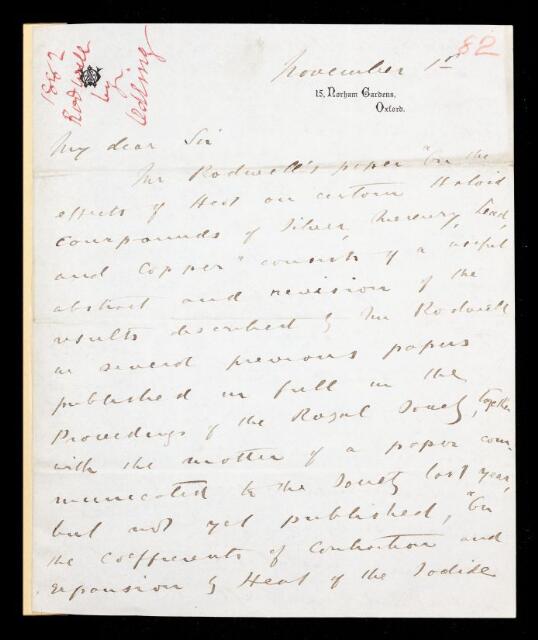 1882
Rodwell
by
Odling
82
November 1st
15, Norham Gardens,
Oxford.
My dear Sir
Mr Rodwell's paper "On the
effects of Heat on certain Haloid
compounds of Silver, Mercury, Lead,
and Copper" consists of a useful
abstract and revision of the
results described by Mr Rodwell
in several previous papers
published in full in the
Proceedings of the Royal Society, together
with the matter of a paper com-
municated to the Society last year,
but not yet published, "On
the coefficients of Contraction and
Expansion by Heat of the Iodide